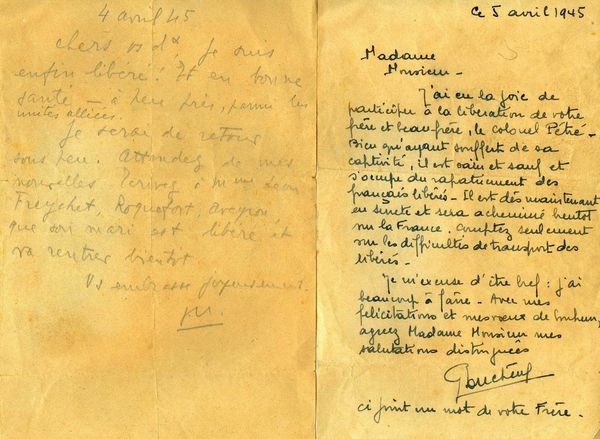 4 avril 45
chers vs dx Je suis
enfin libéré! Et en bonne
santé — à peu près, parmi les
unités alliées.
Je serai de retour
sous peu. Attendez de mes
nouvelles. Ecrivez à Mme
Freychet, Roquefort, Aveyron,
que son mari est libéré et
va rentrer bientôt
Vs embrasse joyeusement.
Ce 5 avril 1945
Madame
Monsieur -
J'ai eu la joie de
participer à la libération de votre
frère et beau-frère, le colonel Pétré -
Bien qu'ayant souffert de sa
captivité, il est sain et sauf et
s'occupe du rapatriement des
français libérés - Il est dès maintenant
en sureté et sera acheminé bientot
sur la France. Comptez seulement
sur les difficultés de transport des
libérés -
Je m'excuse d'être bref : j'ai
beaucoup à faire - Avec mes
félicitations et mes vœux de bonheur,
agréez Madame Monsieur mes
salutations distinguées
ci joint un mot de votre Frère.